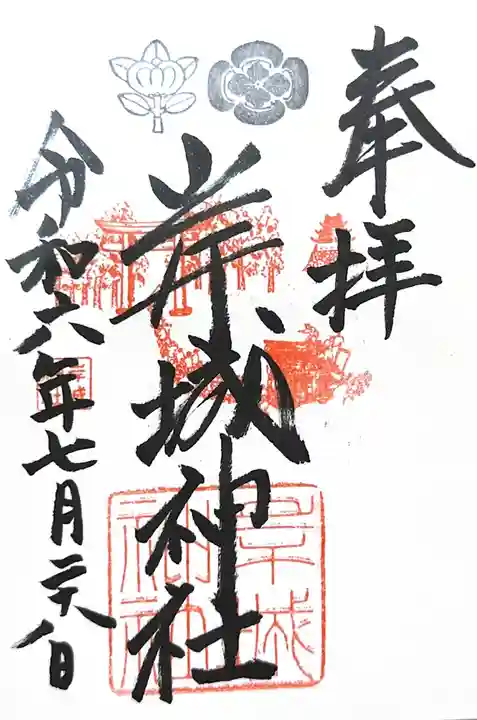 奉拝
岸城神社
令和六年七月二十八日
岸城
神社